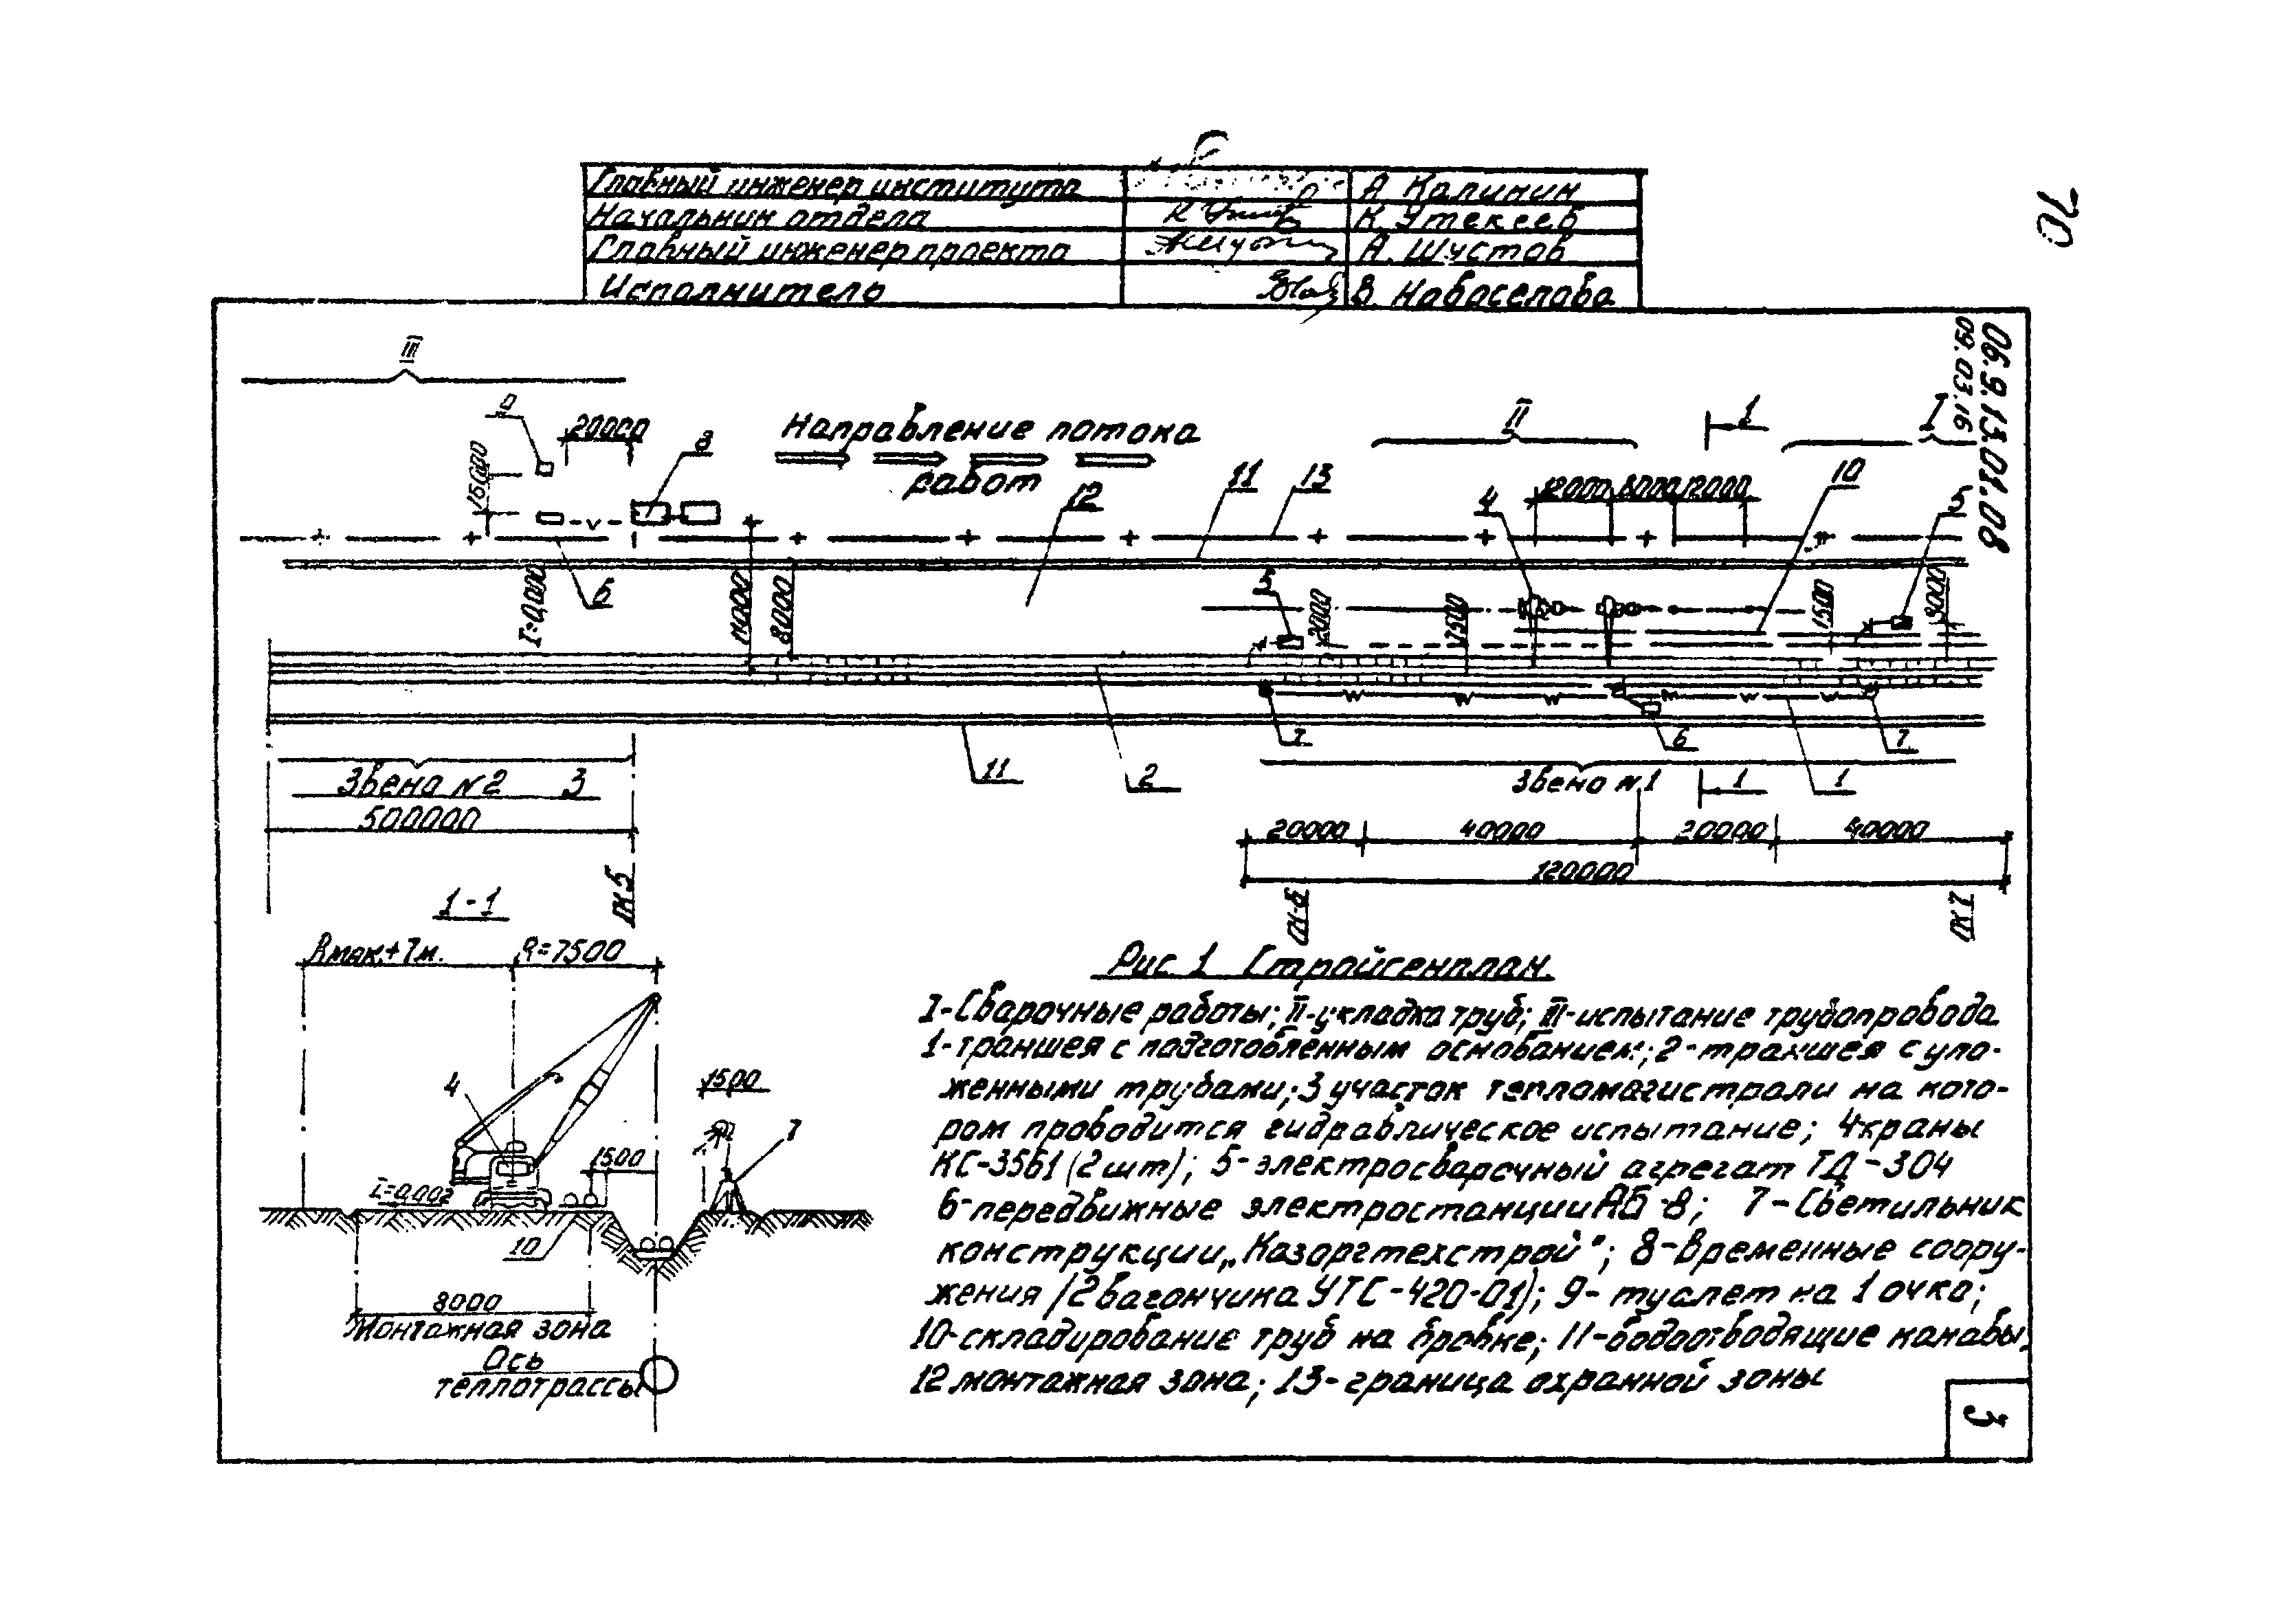 Главный инженер института А. Калинин
Начальник отдела К. Утекеев
Главный инженер проекта А. Шустов
Исполнитель В. Новоселова
70
06.9.13.01.08
09.03.16
III
II
1
I
9
20000
8
Направление потока
работ
15000
12
11
13
4
12000 8000 12000
10
5
6
8000
5
2000
7500
1500
3000
11
2
7
6
7
1
1
Звено №2 3
Звено №1
500000
20000 40000 20000 40000
120000
ПК5
ПК-6
ПК7
1-1
Rмак.+7м. R=7500
4
1500
7
1500
i=0,002
10
8000
Монтажная зона
Ось
теплотрассы
Рис 1 Стройгенплан.
I-Сварочные работы; II-укладка труб; III-испытание трубопровода
1-траншея с подготовленным основанием; 2-траншея с уло-
женными трубами; 3 участок тепломагистрали на кото-
ром проводится гидравлическое испытание; 4 краны
КС-3561 (2 шт); 5-электросварочный агрегат ТД-304
6-передвижные электростанции АБ-8; 7-Светильник
конструкции „Казоргтехстрой"; 8-Временные соору-
жения /2 вагончика УТС-420-01); 9-туалет на 1 очко;
10-складирование труб на бровке; 11-водоотводящие канавы,
12 монтажная зона; 13-граница охранной зоны
3